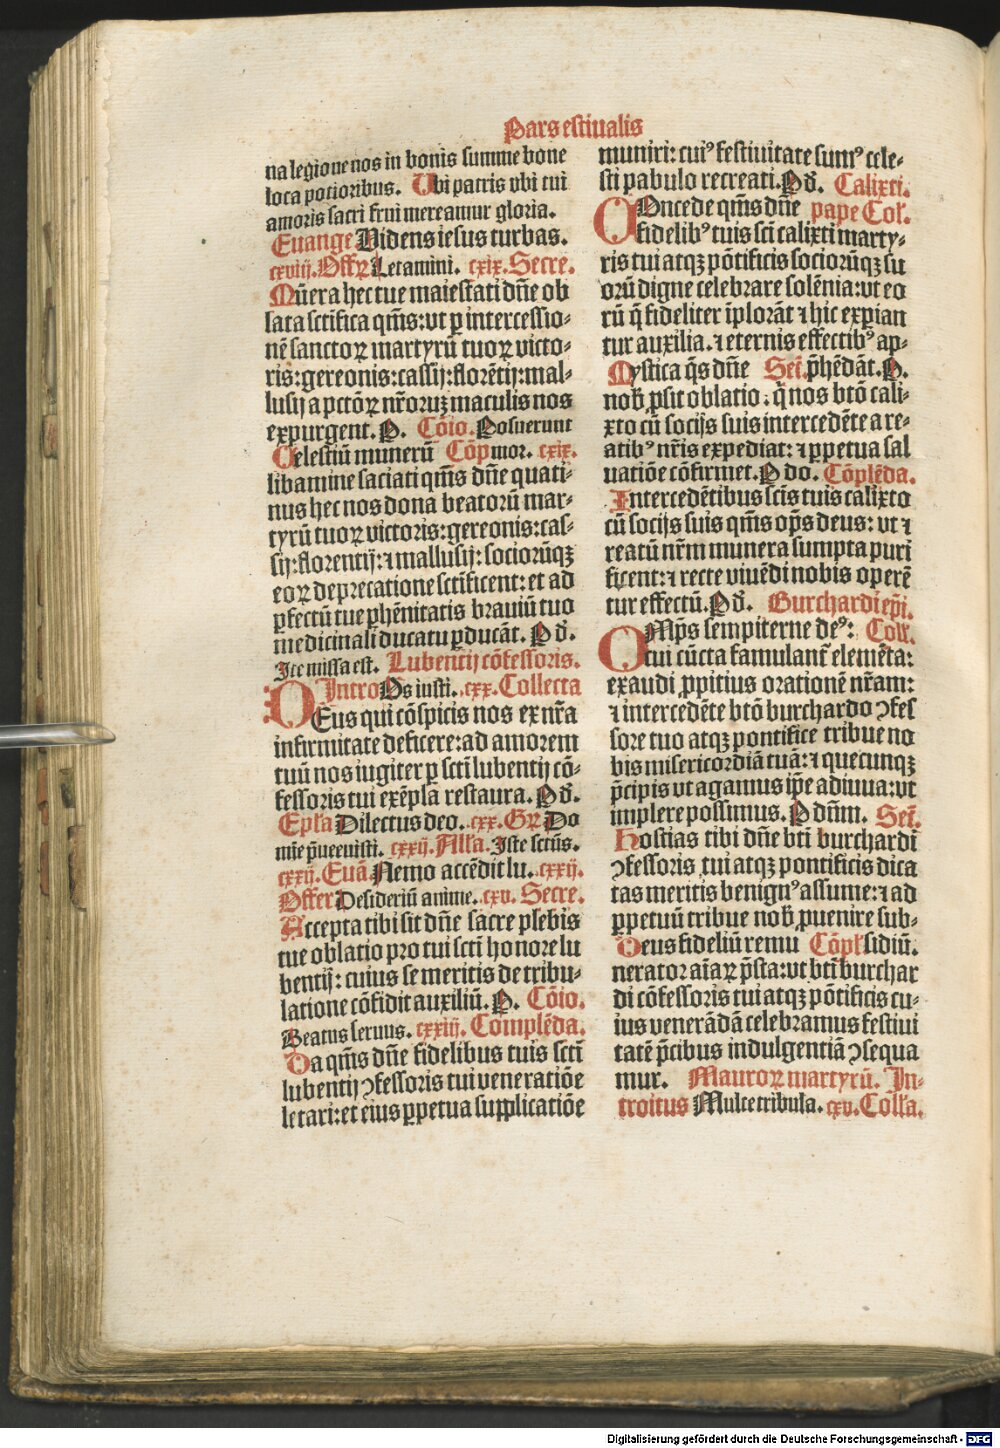 Pars estiualis
na legione nos in bonis summe bone
loca potioribus. Vbi patris vbi tui
amoris sacri frui mereamur gloria.
Euange Videns iesus turbas.
cxviij. Offꝝ Letamini. cxix. Secre.
Mūera hec tue maiestati dn̄e ob
lata sctīfica qm̄s: vt ꝑ intercessio-
nē sanctoꝝ martyrū tuoꝝ victo-
ris: gereonis: cassij: florētij: mal-
lusij a pctōꝝ nr̄oruꝫ maculis nos
expurgent. P. Cōio. Posuerunt
Celestiū munerū Cōp mor. cxix.
libamine saciati qm̄s dn̄e quati-
nus hec nos dona beatorū mar-
tyrū tuoꝝ victoris: gereonis: cas-
sij: florentij: ⁊ mallusij: sociorūqꝫ
eoꝝ deprecatione sctīficent: et ad
ꝑfectū tue ꝑhēnitatis brauiū tuo
medicinali ducatu ꝑducāt. P d̄.
Ite missa est. Lubentij cōfessoris.
Intro Os iusti. cxx. Collecta
DEus qui cōspicis nos ex nr̄a
infirmitate deficere: ad amorem
tuū nos iugiter ꝑ sctī lubentij cō-
fessoris tui exēpla restaura. P d̄.
Epła Dilectus deo. cxx. Gꝝ Do
mīe p̄ueuisti. cxxij. Alła. Iste sctūs.
cxxij. Euā. Nemo accēdit lu. cxxij.
Offer Desideriū anime. cxv. Secre.
Accepta tibi sit dn̄e sacre plebis
tue oblatio pro tui sctī honore lu
bentij: cuius se meritis de tribu-
latione cōfidit auxiliū. P. Cōio.
Beatus seruus. cxxiij. Complēda.
Da qm̄s dn̄e fidelibus tuis sctī
lubentij ↄfessoris tui veneratiōe
letari: et eius ꝑpetua supplicatiōe
muniri: cuiꝰ festiuitate sumꝰ cele-
sti pabulo recreati. P d̄. Calixti.
COncede qm̄s dn̄e pape Coł.
fidelibꝰ tuis sctī calixti marty-
ris tui atqꝫ pōtificis sociorūqꝫ su
orū digne celebrare solēnia: vt eo
rū q̄ fideliter īplorāt ⁊ hic expian
tur auxilia. ⁊ eternis effectibꝰ ap-
Mystica q̄s dn̄e Sec̄. p̄hēdāt. P.
nob̄ ꝓsit oblatio. q̄ nos btō cali-
xto cū socijs suis intercedēte a re-
atibꝰ nr̄is expediat: ⁊ ꝑpetua sal
uatiōe cōfirmet. P do. Cōplēda.
Intercedētibus sctīs tuis calixto
cū socijs suis qm̄s op̄s deus: vt ⁊
reatū nr̄m munera sumpta puri
ficent: ⁊ recte viuēdi nobis operē
tur effectū. P d̄. Burchardi ep̄i.
OMp̄s sempiterne deꝰ: Coll.
cui cūcta famulant̄ elemēta:
exaudi ꝓpitius orationē nr̄am:
⁊ intercedēte btō burchardo ↄfes
sore tuo atqꝫ pontifice tribue no
bis misericordiā tuā: ⁊ quecunqꝫ
p̄cipis vt agamus ip̄e adiuua: vt
implere possimus. P dn̄m. Sec̄.
Hostias tibi dn̄e btī burchardi
ↄfessoris tui atqꝫ pontificis dica
tas meritis benignꝰ assume: ⁊ ad
ꝑpetuū tribue nob̄ ꝓuenire sub-
Deus fideliū remu Cōpł sidiū.
nerator aīaꝝ p̄sta: vt btī burchar
di cōfessoris tui atqꝫ pōtificis cu-
ius venerādā celebramus festiui
tatē p̄cibus indulgentiā ↄsequa
mur. Mauroꝝ martyrū. In-
troitus Mulce tribula. cxv. Colla.
Digitalisierung gefördert durch die Deutsche Forschungsgemeinschaft - DFG